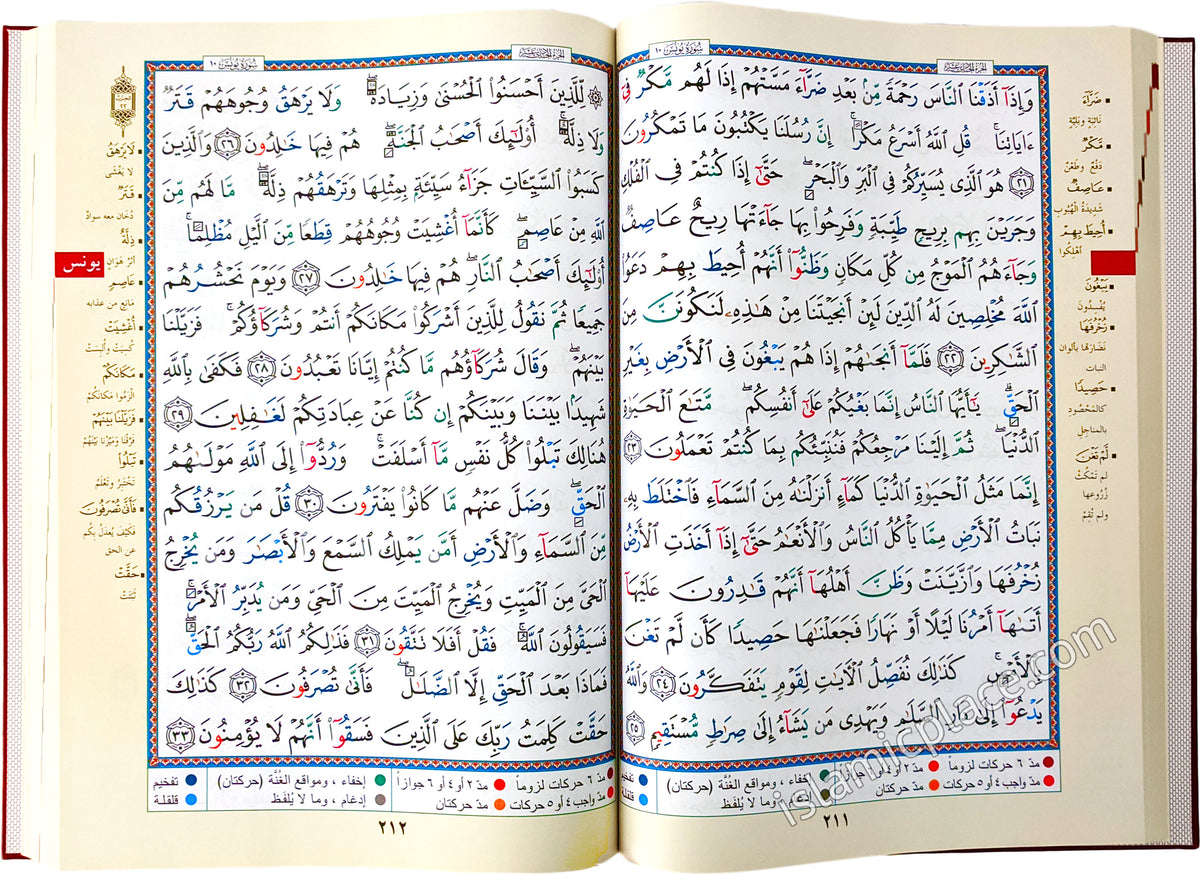 سُورَةُ يُونُسَ ١٠
الجُزْءُ الحَادِيَ عَشَرَ
وَإِذَآ أَذَقْنَا ٱلنَّاسَ رَحْمَةً مِّنۢ بَعْدِ ضَرَّآءَ مَسَّتْهُمْ إِذَا لَهُم مَّكْرٌ فِىٓ
ءَايَاتِنَا ۚ قُلِ ٱللَّهُ أَسْرَعُ مَكْرًا ۚ إِنَّ رُسُلَنَا يَكْتُبُونَ مَا تَمْكُرُونَ
﴿٢١﴾ هُوَ ٱلَّذِى يُسَيِّرُكُمْ فِى ٱلْبَرِّ وَٱلْبَحْرِ ۖ حَتَّىٰٓ إِذَا كُنتُمْ فِى ٱلْفُلْكِ
وَجَرَيْنَ بِهِم بِرِيحٍ طَيِّبَةٍ وَفَرِحُوا۟ بِهَا جَآءَتْهَا رِيحٌ عَاصِفٌ
وَجَآءَهُمُ ٱلْمَوْجُ مِن كُلِّ مَكَانٍ وَظَنُّوٓا۟ أَنَّهُمْ أُحِيطَ بِهِمْ ۙ دَعَوُا۟
ٱللَّهَ مُخْلِصِينَ لَهُ ٱلدِّينَ لَئِنْ أَنجَيْتَنَا مِنْ هَٰذِهِۦ لَنَكُونَنَّ مِنَ
ٱلشَّٰكِرِينَ ﴿٢٢﴾ فَلَمَّآ أَنجَىٰهُمْ إِذَا هُمْ يَبْغُونَ فِى ٱلْأَرْضِ بِغَيْرِ
ٱلْحَقِّ ۗ يَٰٓأَيُّهَا ٱلنَّاسُ إِنَّمَا بَغْيُكُمْ عَلَىٰٓ أَنفُسِكُم ۖ مَّتَٰعَ ٱلْحَيَوٰةِ
ٱلدُّنْيَا ۖ ثُمَّ إِلَيْنَا مَرْجِعُكُمْ فَنُنَبِّئُكُم بِمَا كُنتُمْ تَعْمَلُونَ ﴿٢٣﴾
إِنَّمَا مَثَلُ ٱلْحَيَوٰةِ ٱلدُّنْيَا كَمَآءٍ أَنزَلْنَٰهُ مِنَ ٱلسَّمَآءِ فَٱخْتَلَطَ بِهِۦ
نَبَاتُ ٱلْأَرْضِ مِمَّا يَأْكُلُ ٱلنَّاسُ وَٱلْأَنْعَٰمُ حَتَّىٰٓ إِذَآ أَخَذَتِ ٱلْأَرْضُ
زُخْرُفَهَا وَٱزَّيَّنَتْ وَظَنَّ أَهْلُهَآ أَنَّهُمْ قَٰدِرُونَ عَلَيْهَآ
أَتَىٰهَآ أَمْرُنَا لَيْلًا أَوْ نَهَارًا فَجَعَلْنَٰهَا حَصِيدًا كَأَن لَّمْ تَغْنَ
بِٱلْأَمْسِ ۚ كَذَٰلِكَ نُفَصِّلُ ٱلْءَايَٰتِ لِقَوْمٍ يَتَفَكَّرُونَ ﴿٢٤﴾ وَٱللَّهُ
يَدْعُوٓا۟ إِلَىٰ دَارِ ٱلسَّلَٰمِ وَيَهْدِى مَن يَشَآءُ إِلَىٰ صِرَٰطٍ مُّسْتَقِيمٍ ﴿٢٥﴾
ضَرَّآءَ
نَائِبَةٍ وَبَلِيَّةٍ
مَّكْرٌ
دَفْعٌ وطَعْنٌ
عَاصِفٌ
شَدِيدَةُ الْهُبُوبِ
أُحِيطَ بِهِمْ
أُهْلِكُوا
يَبْغُونَ
يُفْسِدُونَ
زُخْرُفَهَا
نَضَارَتَهَا بألوان
النبات
حَصِيدًا
كَالمَحْصُود
بالمناجل
لَّمْ تَغْنَ
لم تَمْكُثْ
زُرُوعها
ولم تُقِمْ
مدّ ٦ حركات لزوماً
مدّ ٢ أو ٤ أو ٦ جوازاً
إخفاء ، ومواقع الغُنَّة (حركتان)
تفخيم
مدّ واجب ٤ أو ٥ حركات
مدّ حركتان
إدغام ، وما لا يُلفَظ
قلقلة
٢١١
islamicplace.com
الجُزْءُ الحَادِيَ عَشَرَ
سُورَةُ يُونُسَ ١٠
۞ لِّلَّذِينَ أَحْسَنُوا۟ ٱلْحُسْنَىٰ وَزِيَادَةٌ ۖ وَلَا يَرْهَقُ وُجُوهَهُمْ قَتَرٌ
وَلَا ذِلَّةٌ ۚ أُو۟لَٰٓئِكَ أَصْحَٰبُ ٱلْجَنَّةِ ۖ هُمْ فِيهَا خَٰلِدُونَ ﴿٢٦﴾ وَٱلَّذِينَ
كَسَبُوا۟ ٱلسَّيِّـَٔاتِ جَزَآءُ سَيِّئَةٍۭ بِمِثْلِهَا وَتَرْهَقُهُمْ ذِلَّةٌ ۖ مَّا لَهُم مِّنَ
ٱللَّهِ مِنْ عَاصِمٍ ۖ كَأَنَّمَآ أُغْشِيَتْ وُجُوهُهُمْ قِطَعًا مِّنَ ٱلَّيْلِ مُظْلِمًا ۚ
أُو۟لَٰٓئِكَ أَصْحَٰبُ ٱلنَّارِ ۖ هُمْ فِيهَا خَٰلِدُونَ ﴿٢٧﴾ وَيَوْمَ نَحْشُرُهُمْ
جَمِيعًا ثُمَّ نَقُولُ لِلَّذِينَ أَشْرَكُوا۟ مَكَانَكُمْ أَنتُمْ وَشُرَكَآؤُكُمْ ۚ فَزَيَّلْنَا
بَيْنَهُمْ ۖ وَقَالَ شُرَكَآؤُهُم مَّا كُنتُمْ إِيَّانَا تَعْبُدُونَ ﴿٢٨﴾ فَكَفَىٰ بِٱللَّهِ
شَهِيدًۢا بَيْنَنَا وَبَيْنَكُمْ إِن كُنَّا عَنْ عِبَادَتِكُمْ لَغَٰفِلِينَ ﴿٢٩﴾
هُنَالِكَ تَبْلُوا۟ كُلُّ نَفْسٍ مَّآ أَسْلَفَتْ ۚ وَرُدُّوٓا۟ إِلَى ٱللَّهِ مَوْلَىٰهُمُ
ٱلْحَقِّ ۖ وَضَلَّ عَنْهُم مَّا كَانُوا۟ يَفْتَرُونَ ﴿٣٠﴾ قُلْ مَن يَرْزُقُكُم
مِّنَ ٱلسَّمَآءِ وَٱلْأَرْضِ أَمَّن يَمْلِكُ ٱلسَّمْعَ وَٱلْأَبْصَٰرَ وَمَن يُخْرِجُ
ٱلْحَىَّ مِنَ ٱلْمَيِّتِ وَيُخْرِجُ ٱلْمَيِّتَ مِنَ ٱلْحَىِّ وَمَن يُدَبِّرُ ٱلْأَمْرَ ۚ
فَسَيَقُولُونَ ٱللَّهُ ۚ فَقُلْ أَفَلَا تَتَّقُونَ ﴿٣١﴾ فَذَٰلِكُمُ ٱللَّهُ رَبُّكُمُ ٱلْحَقُّ ۖ
فَمَاذَا بَعْدَ ٱلْحَقِّ إِلَّا ٱلضَّلَٰلُ ۖ فَأَنَّىٰ تُصْرَفُونَ ﴿٣٢﴾ كَذَٰلِكَ
حَقَّتْ كَلِمَتُ رَبِّكَ عَلَى ٱلَّذِينَ فَسَقُوٓا۟ أَنَّهُمْ لَا يُؤْمِنُونَ ﴿٣٣﴾
لَا يَرْهَقُ
لا يَغْشَى
قَتَرٌ
دُخَان معه سوادٌ
ذِلَّةٌ
أثرُ هَوَانٍ
عَاصِمٍ
مَانِعٍ من عذابه
أُغْشِيَتْ
كُسِيَتْ وأُلْبِسَتْ
مَكَانَكُمْ
الْزَمُوا مَكَانَكُمْ
فَزَيَّلْنَا بَيْنَهُمْ
فَرَّقْنَا وَمَيَّزْنَا بَيْنَهُمْ
تَبْلُوا
تَخْتَبِرُ وتَعْلَمُ
فَأَنَّىٰ تُصْرَفُونَ
فَكَيْفَ يُعْدَلُ بِكُم
عن الحق
حَقَّتْ
ثَبَتَتْ
يونس
مدّ ٦ حركات لزوماً
مدّ ٢ أو ٤ أو ٦ جوازاً
إخفاء ، ومواقع الغُنَّة (حركتان)
تفخيم
مدّ واجب ٤ أو ٥ حركات
مدّ حركتان
إدغام ، وما لا يُلفَظ
قلقلة
٢١٢